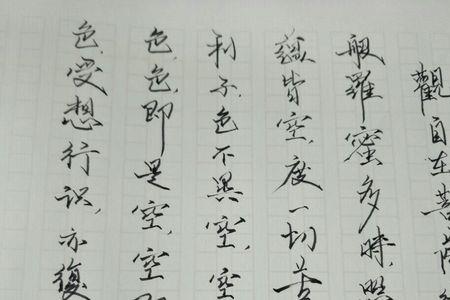 觀自在菩薩
般羅蜜多時，照
蘊皆空，度一切苦
利子，色不異空，空
色，色即是空，空即
色，受想行識，亦復